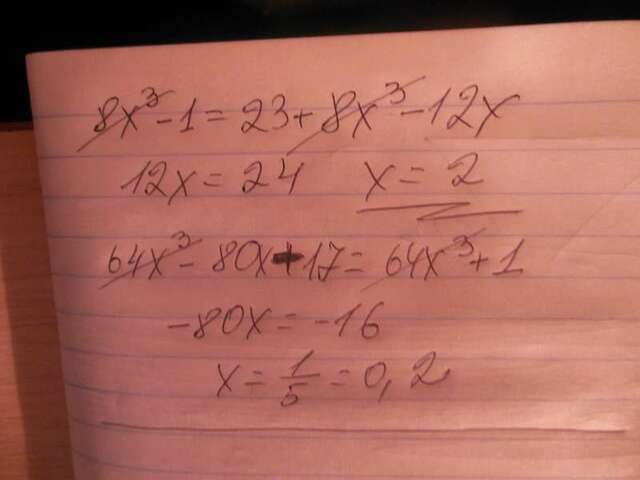 8x³ - 1 = 23 + 8x³ - 12x
12x = 24 x = 2
64x³ - 80x + 17 = 64x³ + 1
-80x = -16
x = 1/5 = 0,2